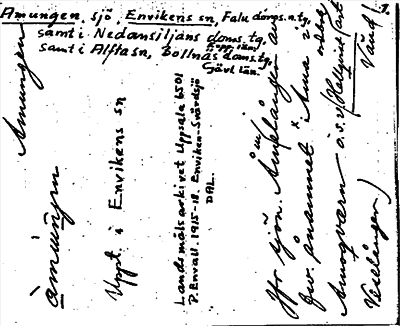 Amungen, sjö, Envikens sn, Falu doms.a.tg,
samt i Nedansiljans doms.tg,
Kopp. län,
samt i Alfta sn, Bollnäs doms.tg,
Gävl. län.
1.
Amungen
åmuŋŋen
Uppt. i Envikens sn
Landsmålsarkivet Uppsala 6501
P. Envall. 1915-18. Enviken-Svärdsjö
DAL.
Jfr sjön Amlången av
fsv. ånamnet Ama i
Amogværn o.s.v. (Hellquist
Växlången)
Vänd!